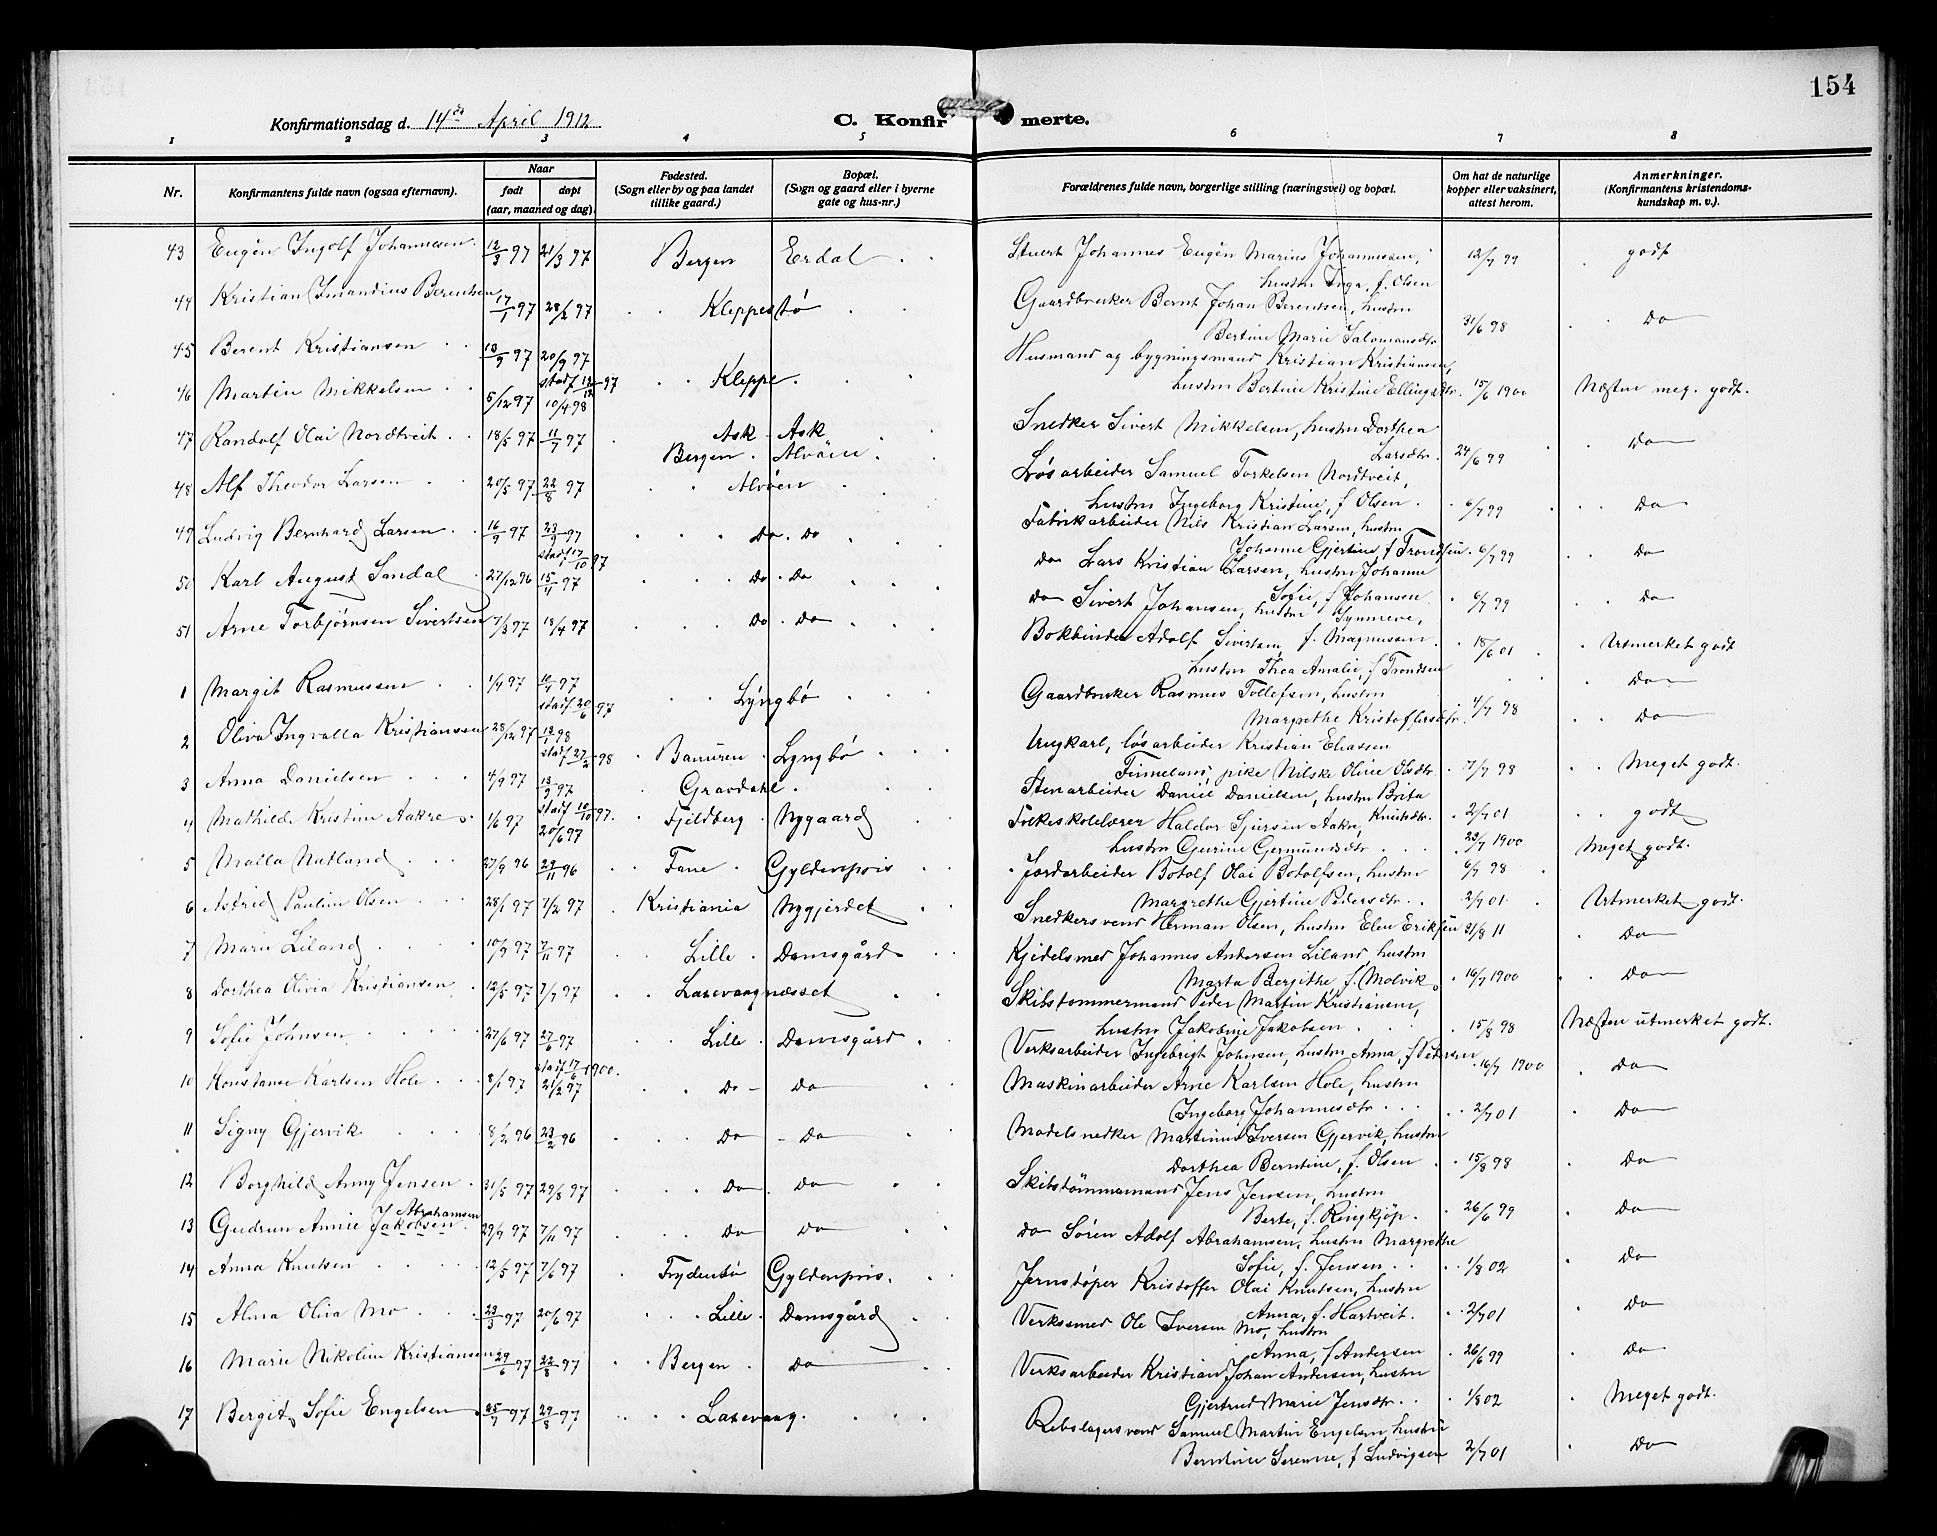 154
Konfirmationsdag d. 14de April 1912
C. Konfirmerte.
1 2 3 4 5 6 7 8
Nr. Konfirmantens fulde navn (ogsaa efternavn). Naar født døpt (aar, maaned og dag). Fødested. (Sogn eller by og paa landet tillike gaard.) Bopæl. (Sogn og gaard eller i byerne gate og hus-nr.) Forældrenes fulde navn, borgerlige stilling (næringsvei) og bopæl. Om hat de naturlige kopper eller vaksinert, attest herom. Anmerkninger. (Konfirmantens kristendomskundskap m. v.).
43 Eugén Ingolf Johannesen 12/3 97 21/3 97 Bergen Erdal Stuert Johannes Eugén Marius Johannessen, 12/7 99 godt
hustru Inga, f. Olsen
44 Kristian Amandius Berentsen 17/1 97 28/2 97 Kleppestø Gaardbruker Bernt Johan Berentsen, hustru
Bertine Marie Salomonsdtr 31/6 98 Do
45 Berent Kristiansen 13/9 97 20/9 97 stadf 12/12 97 Kleppe Husmand og bygningsmand Kristian Kristiansen,
hustru Bertine Kristine Ellingsdtr. 15/6 1900 Næsten meg. godt.
46 Martin Mikkelsen 5/12 97 10/4 98 Ask Ask Snedker Sivert Mikkelsen, hustru Dorthea
Larsdtr. 24/6 99 Do
47 Randolf Olai Nordtveit 18/5 97 11/7 97 Bergen Alvöen Løsarbeider Samuel Torkelsen Nordtveit,
hustru Ingeborg Kristine, f Olsen 6/7 99 Do
48 Alf Theodor Larsen 20/5 97 22/8 97 Alvöen Fabrikarbeider Nils Kristian Larsen, hustru
Johanne Gjertine f Trondsen 6/7 99 Do
49 Ludvig Bernhard Larsen 16/9 97 23/9 97 stadf 17/10 97 Do Do Do Lars Kristian Larsen, hustru Johanne
Sofie, f Johansen 6/7 99 Do
50 Karl August Sandal 27/12 96 15/4 97 Do Do Do Sivert Johansen, hustru Synneve,
f. Magnussen 18/6 01 Utmerket godt
51 Arne Torbjørnsen Sivertsen 7/3 97 18/4 97 Do Do Bokbinder Adolf Sivertsen,
hustru Thea Amalie, f Trondsen Do
1 Margit Rasmussen 1/4 97 10/4 97 stadf 20/6 97 Lyngbø Gaardbruker Rasmus Tollefsen, hustru
Margrethe Kristoffersdtr. 4/7 98 Do
2 Oliva Ingvalla Kristianssen 28/12 97 12/1 98 stadf 27/2 98 Banuren Lyngbö Ungkarl, løsarbeider Kristian Eliassen
Finneland, pike Nilske Oline Olsdtr. 7/7 98 Meget godt.
3 Anna Danielsen 4/9 97 13/9 97 stadf 10/10 97. Gravdahl Stenarbeider Daniel Danielsen, hustru Brita
Knutsdtr. 2/7 01 godt
4 Mathilde Kristine Aakre 1/6 97 20/6 97 Fjeldberg Nygaard Folkeskolelærer Haldor Sjursen Aakre,
hustru Gurine Germundsdtr 23/7 1900 Meget godt.
5 Malla Natland 27/9 96 29/11 96 Fane Gyldenpris Jordarbeider Botolf Olai Botolfsen, hustru 6/7 98
Margrethe Gjertine Pedersdtr. 2/7 01 Utmerket godt.
6 Astrid Pauline Olsen 28/1 97 7/2 97 Kristiania Nygjerdet Snedkersvend Herman Olsen, hustru Elen Eriksen 31/8 11 Do
7 Marie Liland 10/9 97 7/11 97 Lille Damsgård Kjedelsmed Johannes Andersen Liland, hustru
Marta Bergithe, f. Molvik 16/7 1900 Do
8 Dorthea Olivia Kristiansen 12/5 97 7/7 97 Laxevaagnæsset Skibstømmermand Peder Martin Kristiansen,
hustru Jakobine Jakobsen 15/8 98 Næsten utmerket godt.
9 Sofie Johnsen 27/6 97 27/6 97 stadf 17/6 1900. Lille Damsgård Verksarbeider Ingebrigt Johnsen, hustru Anna, f Petersen 16/7 1900 Do
10 Konstanse Karlsen Hole 8/1 97 21/2 97 Do Do Maskinarbeider Arne Karlsen Hole, hustru
Ingeborg Johannesdtr 2/7 01 Do
11 Signy Gjervik 8/2 96 23/2 96 Do Do Modelsnedker Martinus Iversen Gjervik, hustru
Dorthea Berntine, f. Olsen 15/8 98 Do
12 Borghild Anny Jensen 31/5 97 29/8 97 Do Do Skibstömmermand Jens Jensen, hustru
Berte, f. Ringkjöp. 26/6 99 Do
13 Gudrun Annie Jakobsen Abrahamsen 29/9 97 7/11 97 Do Do Do Sören Adolf Abrahamsen, hustru Margrethe
Sofie, f. Jensen 1/8 02 Do
14 Anna Knutsen 12/5 97 7/6 97 Frydenbø Gyldenpris. Jernstöper Kristoffer Olai Knutsen, hustru
Anna, f. Hartveit. 2/7 01 Do
15 Alma Olia Mo 23/3 97 20/6 97 Lille Damsgård Verksmed Ole Iversen Mo, hustru
Anna, f Andersen 26/6 99 Do
16 Marie Nikoline Kristiansen 29/6 97 22/8 97 Bergen Do Verksarbeider Kristian Johan Andersen, hustru
Gjertrud Marie Jensdtr 1/8 02 Meget godt.
17 Bergit Sofie Engelsen 25/7 97 29/8 97 Laxevaag Rebslagersvend Samuel Martin Engelsen, hustru
Berntine Serenne, f Ludvigsen 2/7 01 Do